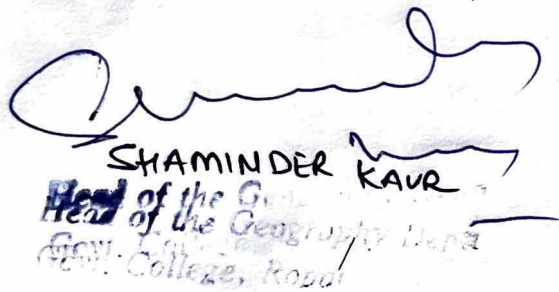 SHAMINDER KAUR
Head of the
Head of the Geography Dept
Govt. College, Ropar